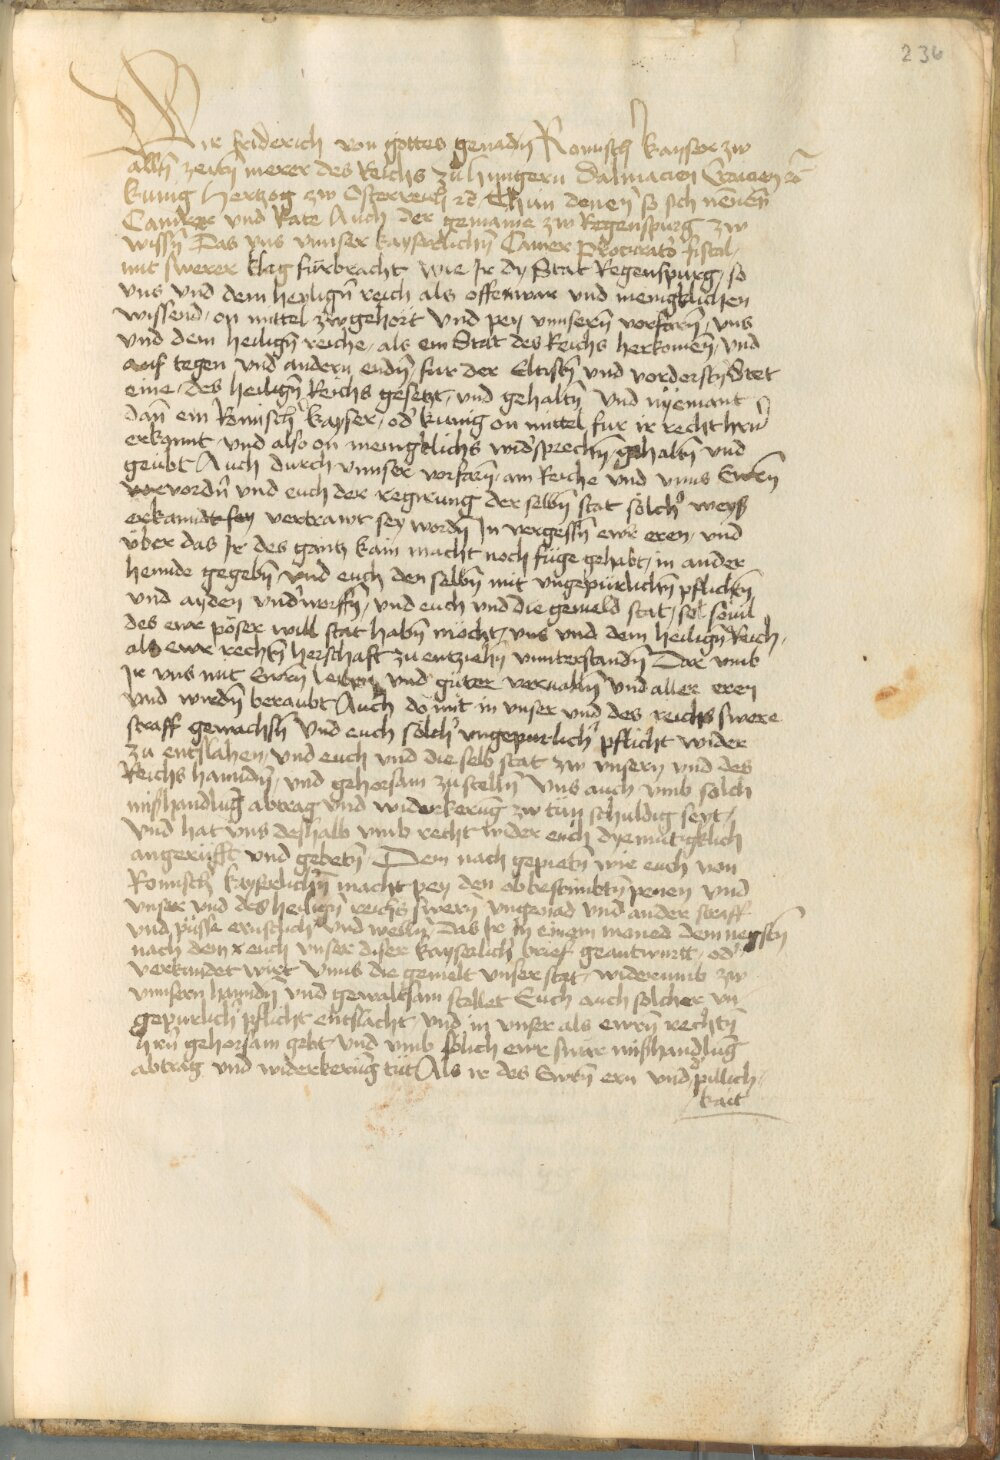 236
Wir friderich von gottes genadn̄ Romisch kayser zw
alln̄ zeitn̄ merer des Reichs zu hungern dalmacien Croacien ꝛc
kunig Hertzog zw Osterreich ꝛc Thun denen so sich nennen̄
Camrer vnd Rate Auch der gemaine zw Regenspurg zw
wissn̄ Das vns vnnser kayserlichn̄ Camer Procurator fiscal
mit swerer klag furbracht wie Ir dy Stat Regenspurg, so
vns vnd dem heylign̄ reich als offenwar vnd menigklichen
wissend, on mittel zwgehort Vnd pey vnnsern̄ vorfarn̄, vns
vnd dem heilign̄ reiche, als ein Stat des Reichs herkomen̄, vnd
auf tegen vnd andern endn̄, fur der Eltistn̄ vnd vorderstn̄ Stet
eine, des heilign̄ Reichs gesetzt, vnd gehaltn̄ Vnd nyemant
dan̄ ein Romisch kayser, od' kunig on mittel fur ir recht hrn̄
erkannt vnd also on menigklichs wid'sprechn̄ gehaltn̄ vnd
geubt Auch durch vnnser vorfarn̄, am Reiche vnd vnns Ewrn̄
vorvordn̄ vnd euch der regirung der selbn̄ stat solch' weyß
erkanndt sey vertrawt sey wordn̄ In vergessn̄ ewr eren, vnd
über das Ir des gantz kain macht noch füge gehabt, in ander
hennde gegebn̄ Vnd euch den selbn̄ mit vngepurlichn̄ pflichtn̄
vnd ayden vnd'worffn̄, vnd euch vnd die gemeld stat, so souil
des ewr pöser will stat habn̄ möcht, vns vnd dem heilign̄ Reich,
als ewr rechtn̄ herschaft zu entziehn̄ vnnterstandn̄ Dar vmb
Ir vns mit Ewrn̄ leiben vnd güter veruallen̄ vnd aller eren
vnd wirdn̄ beraubt Auch do mit in vnser vnd des reichs swere
straff gewachsn̄ Vnd euch solch' vngepurlich' pflicht wider
zu entslahen, vnd euch vnd die selb stat zw vnsern vnd des
Reichs hanndn̄, vnd gehorsam zustelln̄ Vns auch vmb solch
mißhandlung abtrag vnd widerkerūg zw tun schuldig seyt,
Vnd hat vns deshalb vmb recht wider euch dyemutigklich
angerüfft vnd gebetn̄ Dem nach gepietn̄ wir euch von
Romisch' kayserlich'n macht pey den obbestimbtn̄ penen vnd
vnser vnd des heilign̄ reichs swern̄ vngenad vnd ander straff
vnd pusse ernstlich vnd welln̄ Das Ir In einem moned dem negstn̄
nach dem x euch vnser diser kayserlich' brief geantwurtt, od'
verkundet wirt Vnns die gemelt vnser stat, widerumb zw
vnnsern hanndn̄ vnd gewaltsam stellet Euch auch solcher vn
gepurlich' pflicht entslacht, Vnd in vnser als ewrn̄ rechtn̄
hrn̄ gehorsam gebt vnd vmb solich ewr swär mißhandlūg
abtrag vnd widerkerūg tüt Als ir des Ewrn̄ ern vnd pillich,
kait